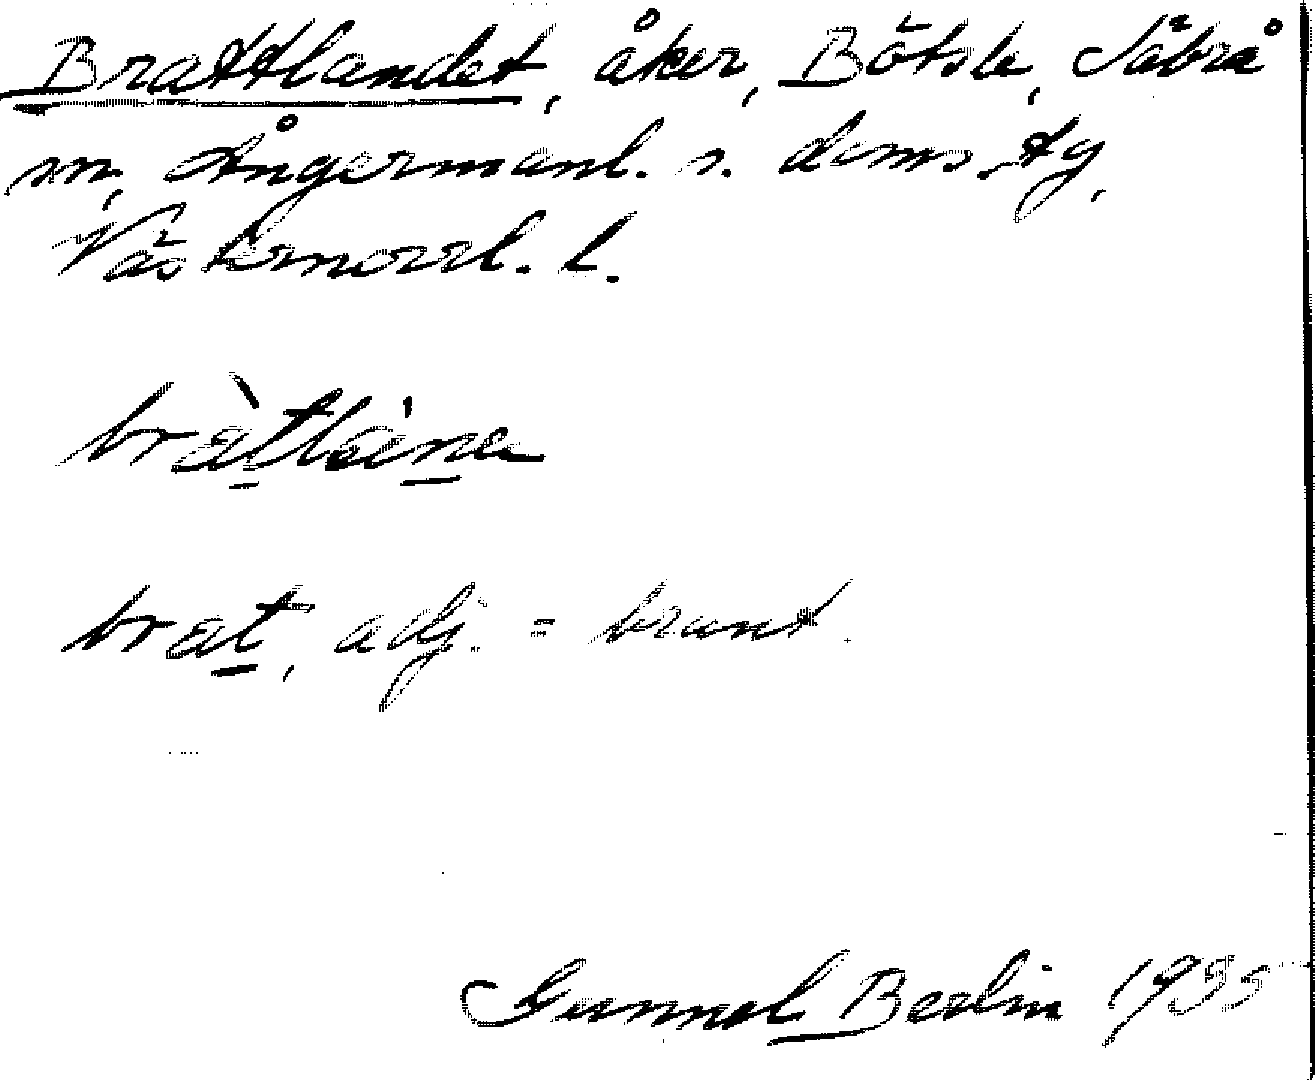 Brattlandet, åker, Bötsle, Säbrå
sn, Ångermanl. s. doms.tg,
Västernorrl. l.
bràtlánə
brat, adj. = brant.
Gunnel Berlin 1935